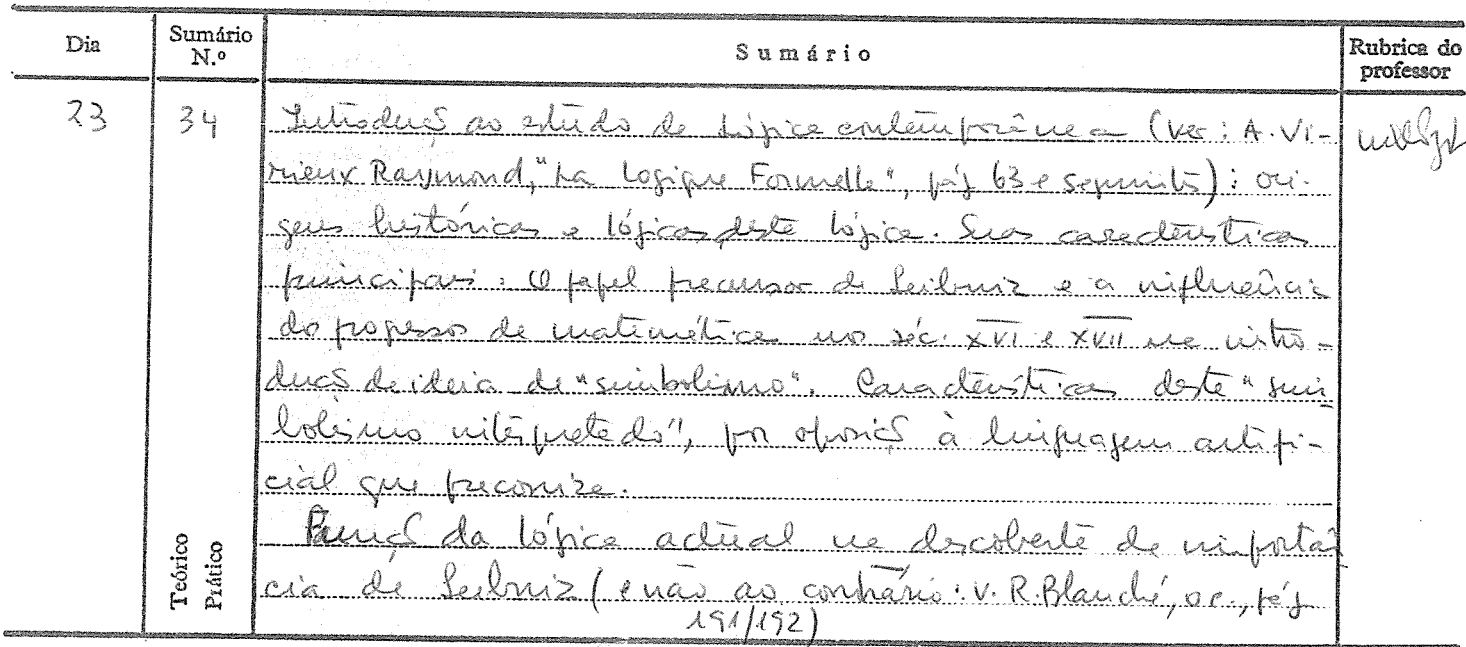 Dia
Sumário N.º
Sumário
Rubrica do professor
23
34
Introduç ao estudo da Lógica contemporânea (ver: A. Vi-
rieux Raymond, "La Logique Formelle", pág 63 e seguints): ori-
gens históricas e lógicas desta lógica. Suas características
principais: O papel precursor de Leibniz e a influência
do progresso da matemática nos séc. XVI e XVII na intro-
duç da ideia de "simbolismo". Características deste "sim
bolismo interpretado", por oposiç à linguagem artifi-
cial que preconiza.
Funç da lógica actual na descoberta da importân
cia de Leibniz (e não ao contrário: v. R. Blanché, o.c., pág
191/192)
Teórico
Prático